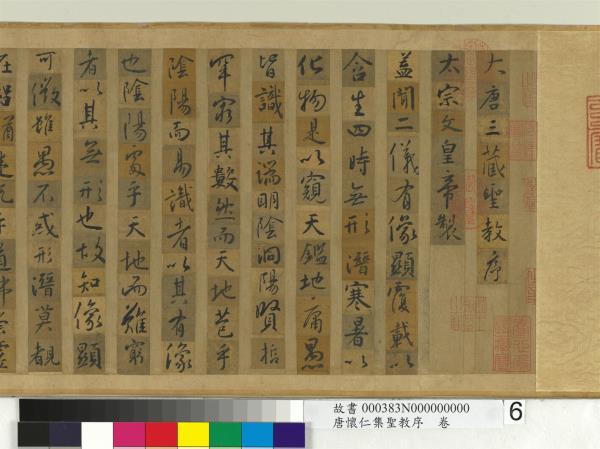 大唐三藏聖教序
太宗文皇帝製
蓋聞二儀有像顯覆載以
含生四時無形潛寒暑以
化物是以窺天鑑地庸愚
皆識其端明陰洞陽賢哲
罕窮其數然而天地苞乎
陰陽而易識者以其有像
也陰陽處乎天地而難窮
者以其無形也故知像顯
可徵雖愚不惑形潛莫覩
在智猶迷況乎
故書 000383N000000000
唐懷仁集聖教序 卷
6